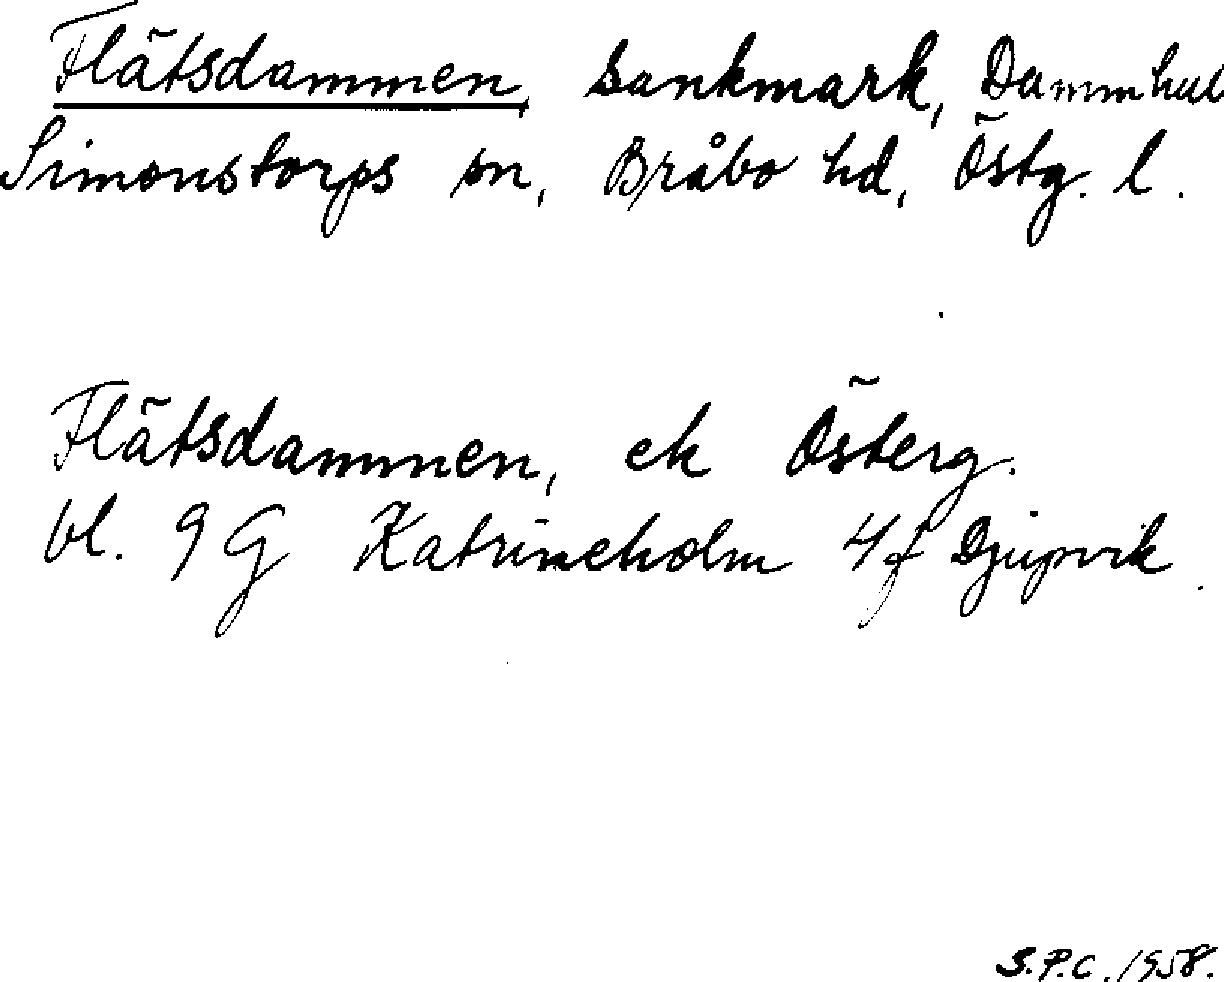 Flätsdammen, sankmark, Dammhul
Simonstorps sn, Bråbo hd, Östg. l.
Flätsdammen, ek Österg.
bl. 9 G Katrineholm 4f Djupvik
S.P.C. 1958.